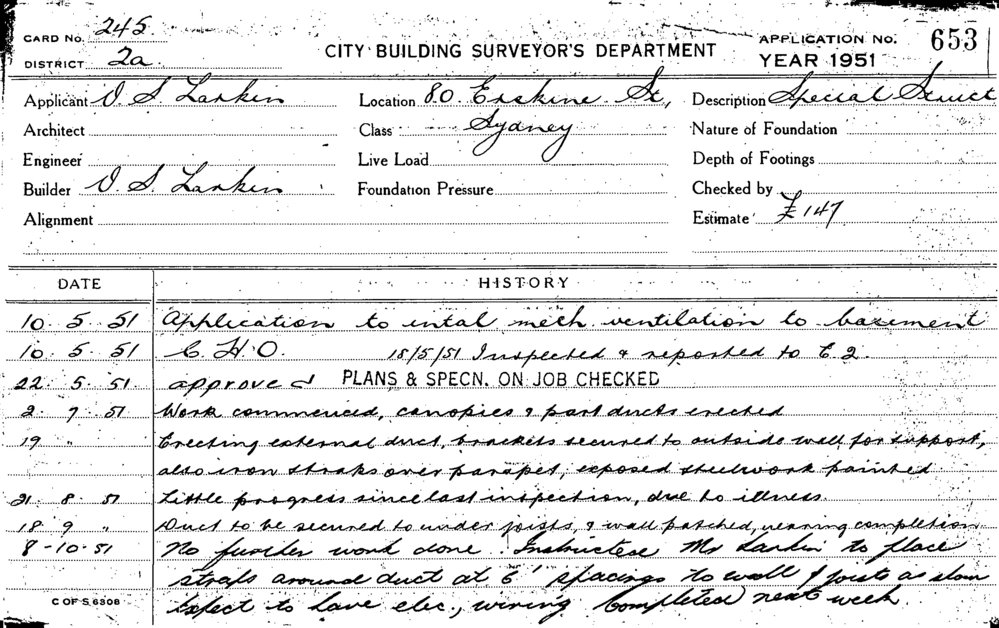 CARD No. 245
DISTRICT 2a.
CITY BUILDING SURVEYOR'S DEPARTMENT
APPLICATION No. 653
YEAR 1951
Applicant V S Larkin
Location 80 Erskine St,
Description Special Struct
Architect
Class Sydney
Nature of Foundation
Engineer
Live Load
Depth of Footings
Builder V S Larkin
Foundation Pressure
Checked by
Alignment
Estimate £147
DATE HISTORY
10 . 5 . 51 Application to intal mech. ventilation to basement
10 . 5 . 51 C. H. O. 18/5/51 Inspected & reported to E.2.
22 . 5 . 51 approved PLANS & SPECN. ON JOB CHECKED
2 . 7 . 51 Work commenced, canopies & part ducts erected
19 " Erecting external duct, brackets secured to outside wall for support,
also iron straks over parapet, exposed steelwork painted
21 . 8 . 51 Little progress since last inspection, due to illness.
18 9 " Duct to be secured to under joists, & wall patched, nearing completion
8-10-51 No further work done. Instructed Mr Larkin to place
straps around duct at 6' spacings to wall & joists as
Expect to have elec., wiring completed next week.
C OF S 6308